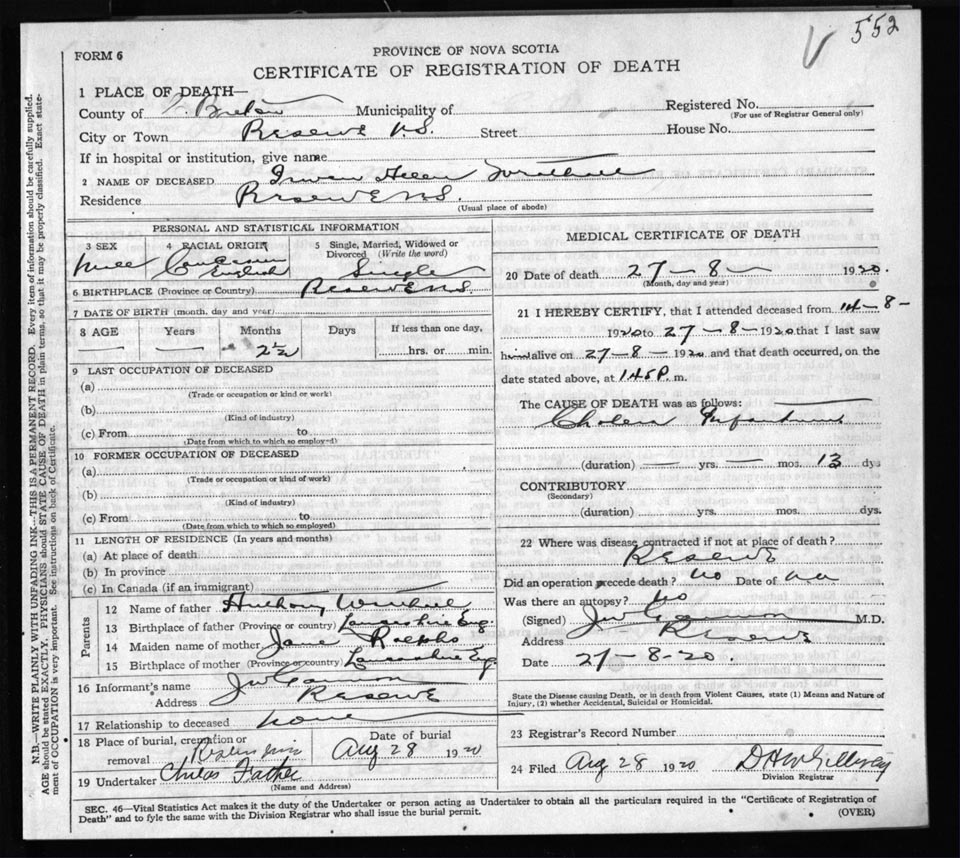 552
FORM 6
PROVINCE OF NOVA SCOTIA
CERTIFICATE OF REGISTRATION OF DEATH
1 PLACE OF DEATH—
County of C. Breton Municipality of
Registered No.
(For use of Registrar General only)
City or Town Reserve N.S. Street House No.
If in hospital or institution, give name
2 NAME OF DECEASED Helen
Residence Reserve N.S.
(Usual place of abode)
PERSONAL AND STATISTICAL INFORMATION
3 SEX 4 RACIAL ORIGIN 5 Single, Married, Widowed or Divorced (Write the word)
Caucasian English Single
6 BIRTHPLACE (Province or Country) Reserve N.S.
7 DATE OF BIRTH (month, day and year)
8 AGE Years Months Days If less than one day,
— — 2½ hrs. or min.
9 LAST OCCUPATION OF DECEASED
(a)
(Trade or occupation or kind or work)
(b)
(Kind of industry)
(c) From to
(Date from which to which so employed)
10 FORMER OCCUPATION OF DECEASED
(a)
(Trade or occupation or kind of work)
(b)
(Kind of industry)
(c) From to
(Date from which to which so employed)
11 LENGTH OF RESIDENCE (In years and months)
(a) At place of death
(b) In province
(c) In Canada (if an immigrant)
Parents
12 Name of father Anthony
13 Birthplace of father (Province or country) Lancashire Eng.
14 Maiden name of mother Jane Ralphs
15 Birthplace of mother (Province or country) Lancashire Eng.
16 Informant's name
Address Reserve
17 Relationship to deceased none
18 Place of burial, cremation or removal Date of burial
Aug 28 1920
19 Undertaker Childs Father
(Name and Address)
MEDICAL CERTIFICATE OF DEATH
20 Date of death 27—8— 1920.
(Month, day and year)
21 I HEREBY CERTIFY, that I attended deceased from 14—8—
1920 to 27—8—1920 that I last saw
him alive on 27—8—1920 and that death occurred, on the
date stated above, at 1.45 P. m.
The CAUSE OF DEATH was as follows:
Cholera Infantum
(duration) — yrs. — mos. 13 dys
CONTRIBUTORY
(Secondary)
(duration) yrs. mos. dys.
22 Where was disease contracted if not at place of death?
Reserve
Did an operation precede death? No Date of
Was there an autopsy? No
(Signed) M.D.
Address Reserve
Date 27-8-20.
State the Disease causing Death, or in death from Violent Causes, state (1) Means and Nature of
Injury, (2) whether Accidental, Suicidal or Homicidal.
23 Registrar's Record Number
24 Filed Aug 28 1920 D H McGillivray
Division Registrar
SEC. 46—Vital Statistics Act makes it the duty of the Undertaker or person acting as Undertaker to obtain all the particulars required in the "Certificate of Registration of
Death" and to fyle the same with the Division Registrar who shall issue the burial permit. (OVER)
N.B.—WRITE PLAINLY WITH UNFADING INK—THIS IS A PERMANENT RECORD. Every item of information should be carefully supplied.
AGE should be stated EXACTLY. PHYSICIANS should STATE CAUSE OF DEATH in plain terms, so that it may be properly classified. Exact state-
ment of OCCUPATION is very important. See instructions on back of Certificate.